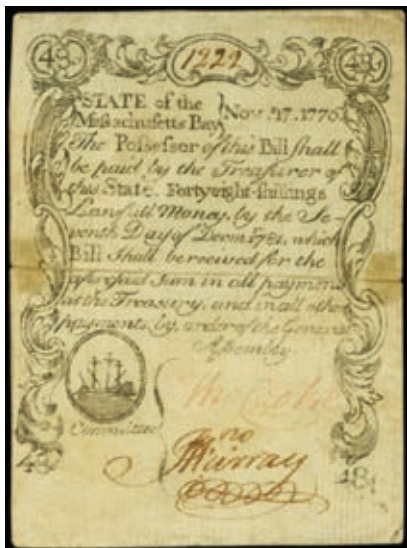 48s 1222 48s
STATE of the
Massachusetts Bay } Nov. 17. 1776.
The Possessor of this Bill shall
be paid by the Treasurer of
this State, Forty eight shillings
Lawfull Money, by the Se-
venth Day of Decm. 1781, which
Bill shall be received for the
aforesaid Sum in all payments
at the Treasury, and in all other
payments by order of the General
Assembly.
Committee
Jno
Murray
48s 48s